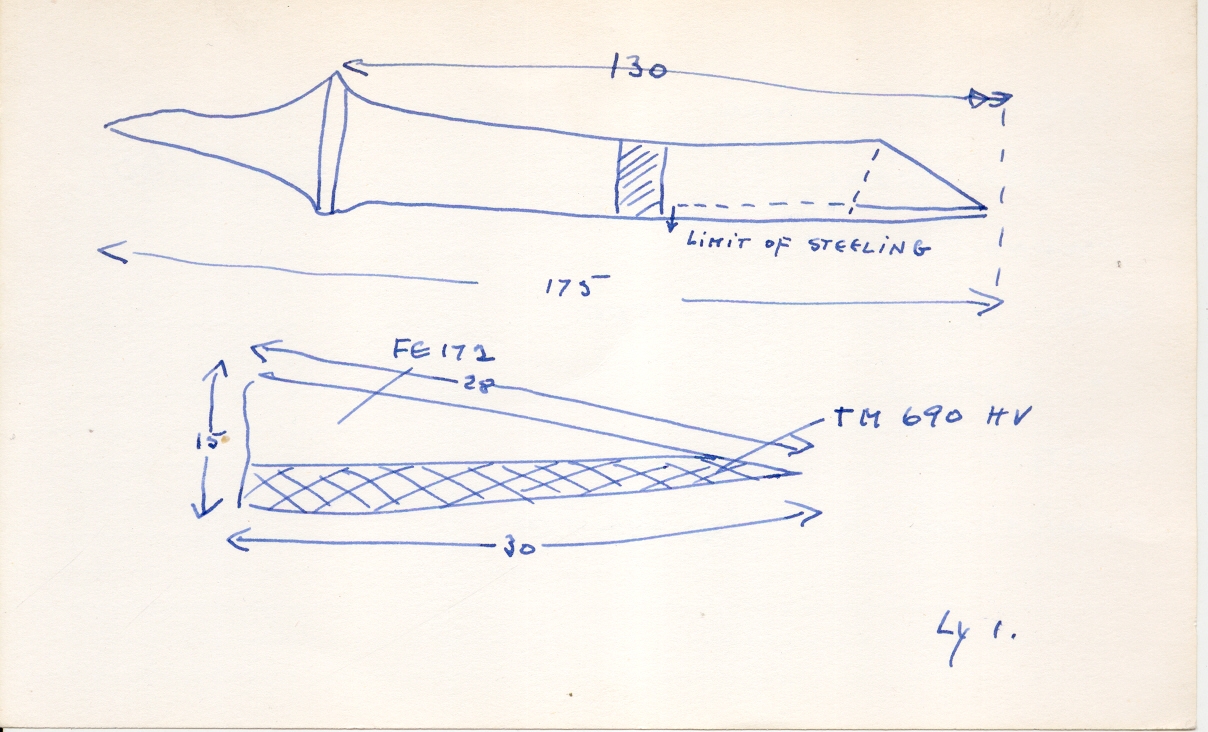 130
LIMIT OF STEELING
175
FE 172
28
15
TM 690 HV
30
Ly 1.